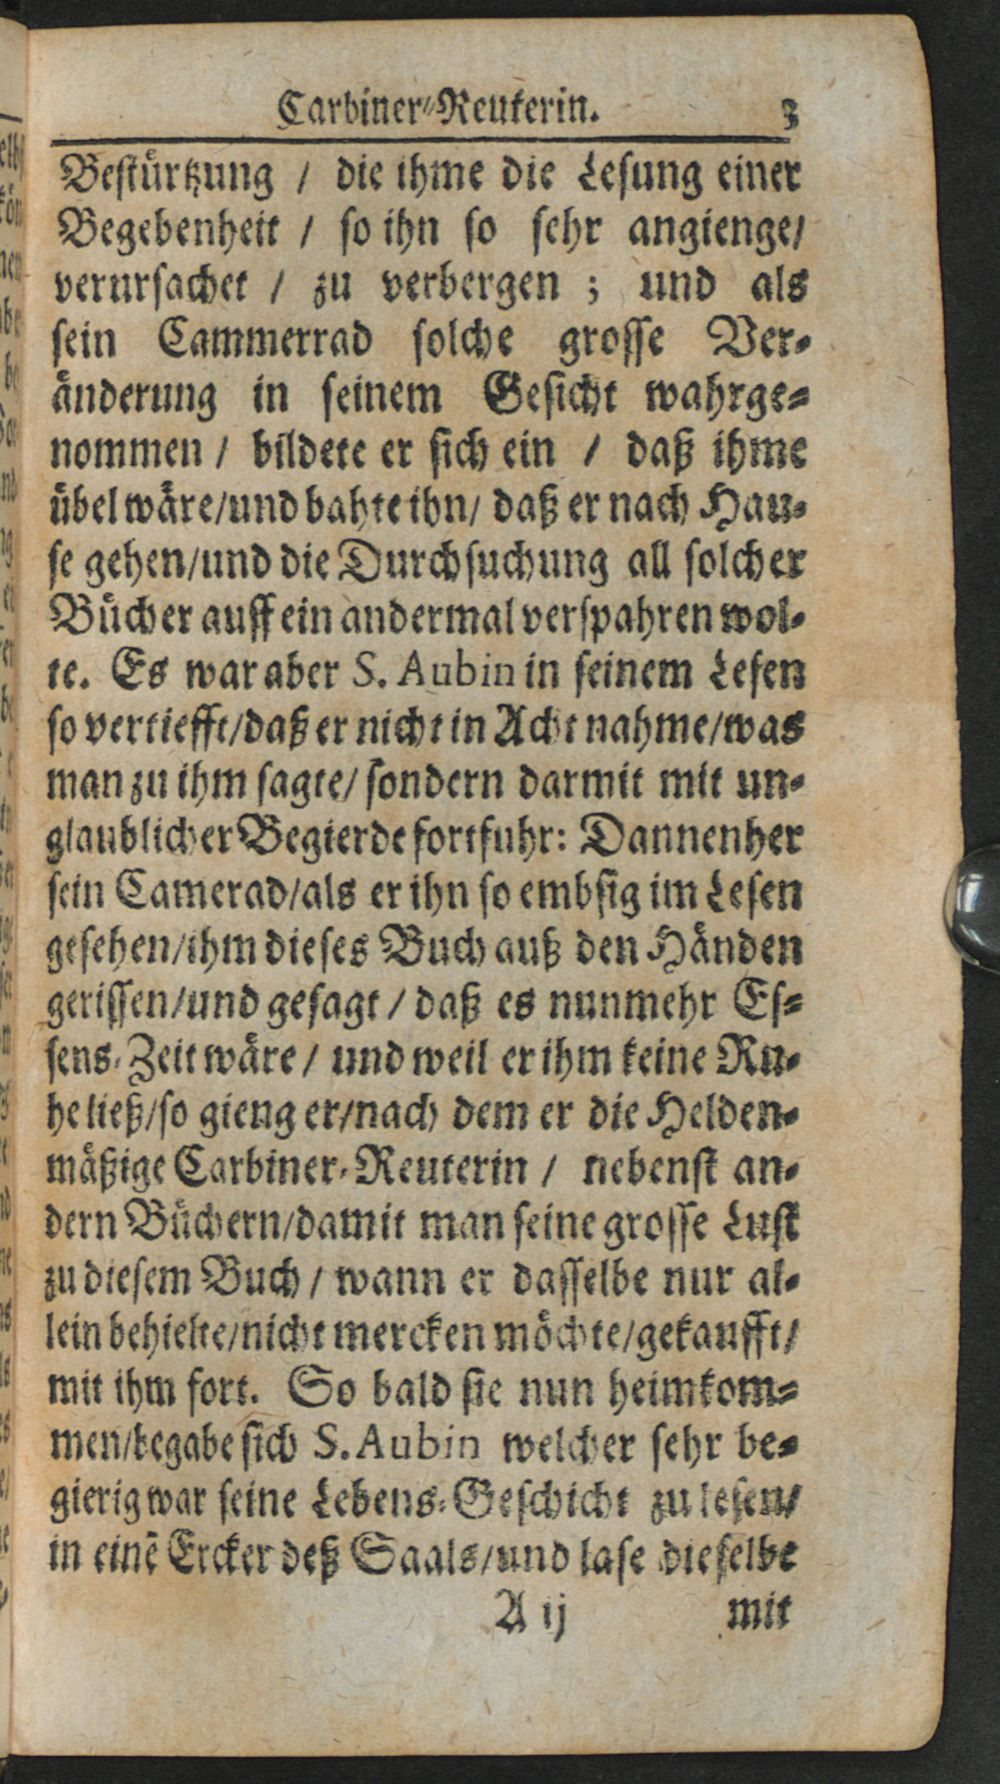 Carbiner-Reuterin. 3
Bestürtzung / die ihme die Lesung einer
Begebenheit / so ihn so sehr angienge/
verursachet / zu verbergen ; und als
sein Cammerrad solche grosse Ver-
änderung in seinem Gesicht wahrge-
nommen / bildete er sich ein / daß ihme
übel wäre/und bahte ihn/ daß er nach Hau-
se gehen/und die Durchsuchung all solcher
Bücher auff ein andermal verspahren wol-
te. Es war aber S. Aubin in seinem Lesen
so vertiefft/daß er nicht in Acht nahme/was
man zu ihm sagte/ sondern darmit mit un-
glaublicher Begierde fortfuhr: Dannenher
sein Camerad/als er ihn so embsig im Lesen
gesehen/ihm dieses Buch auß den Händen
gerissen/und gesagt / daß es nunmehr Es-
sens-Zeit wäre / und weil er ihm keine Ru-
he ließ/so gieng er/nach dem er die Helden-
mäßige Carbiner-Reuterin / nebenst an-
dern Büchern/damit man seine grosse Lust
zu diesem Buch / wann er dasselbe nur al-
lein behielte/nicht mercken möchte/gekaufft/
mit ihm fort. So bald sie nun heimkom-
men/begabe sich S. Aubin welcher sehr be-
gierig war seine Lebens-Geschicht zu lesen/
in einē Ercker deß Saals/und lase dieselbe
A ij mit